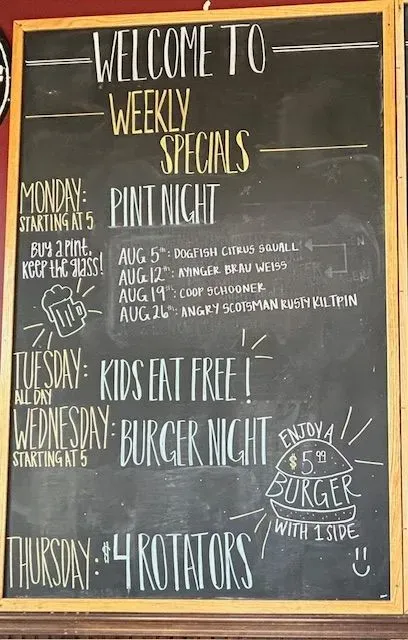 WELCOME TO
WEEKLY
SPECIALS
MONDAY: PINT NIGHT
STARTING AT 5
Buy a pint,
keep the glass!
AUG 5th: DOGFISH CITRUS SQUALL
AUG 12th: AYINGER BRAU WEISS
AUG 19th: COOP SCHOONER
AUG 26th: ANGRY SCOTSMAN RUSTY KILTPIN
TUESDAY: KIDS EAT FREE!
ALL DAY
WEDNESDAY: BURGER NIGHT
STARTING AT 5
ENJOY A
$5.99
BURGER
WITH 1 SIDE
THURSDAY: $4 ROTATORS